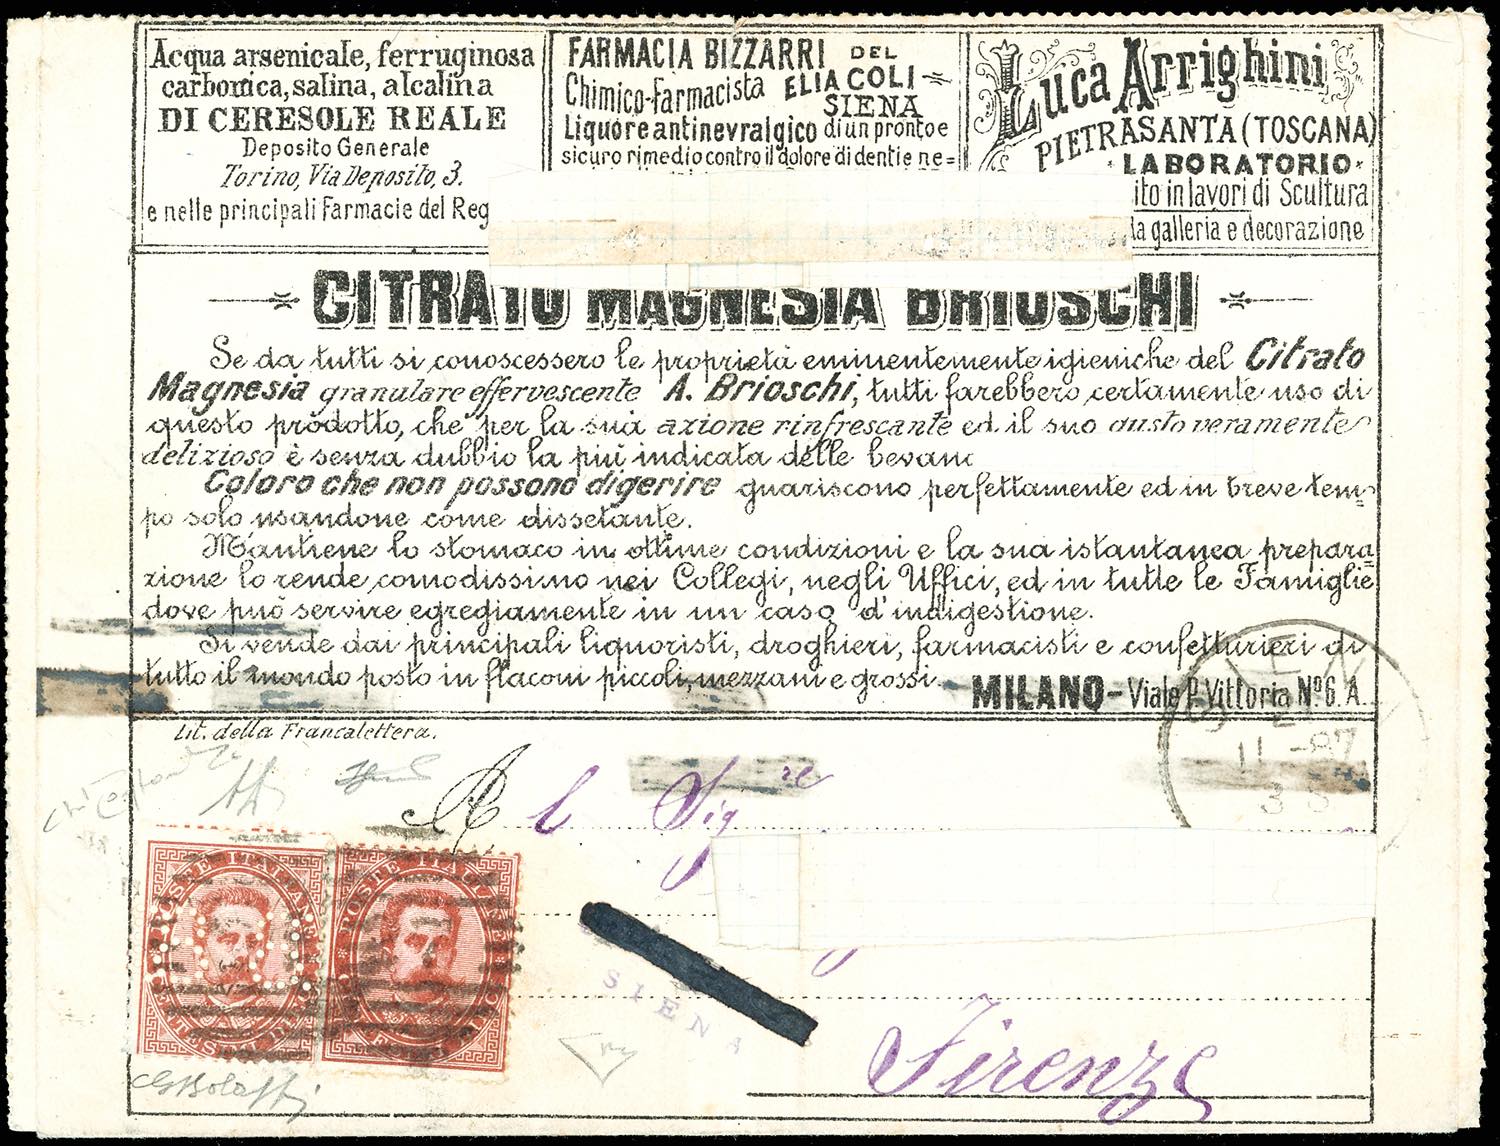 Acqua arsenicale, ferruginosa
carbonica, salina, alcalina
DI CERESOLE REALE
Deposito Generale
Torino, Via Deposito, 3.
e nelle principali Farmacie del Reg
FARMACIA BIZZARRI DEL
Chimico-Farmacista ELIA COLI
SIENA
Liquore antinevralgico di un pronto e
sicuro rimedio contro il dolore di denti e ne=
Luca Arrighini
PIETRASANTA (TOSCANA)
LABORATORIO
ito in lavori di Scultura
da galleria e decorazione
CITRATO MAGNESIA BRIOSCHI
Se da tutti si conoscessero le proprietà eminentemente igieniche del Citrato
Magnesia granulare effervescente A. Brioschi, tutti farebbero certamente uso di
questo prodotto, che per la sua azione rinfrescante ed il suo gusto veramente
delizioso è senza dubbio la più indicata delle bevan
Coloro che non possono digerire guariscono perfettamente ed in breve tem=
po solo usandone come dissetante.
Mantiene lo stomaco in ottime condizioni e la sua istantanea prepara=
zione lo rende comodissimo nei Collegi, negli Uffici, ed in tutte le Famiglie
dove può servire egregiamente in un caso d'indigestione.
Si vende dai principali liquoristi, droghieri, farmacisti e confetturieri di
tutto il mondo posto in flaconi piccoli, mezzani e grossi.
MILANO - Viale P. Vittoria Nº 6. A.
Lit. della Francalettera.
A l Sigre
POSTE ITALIANE
POSTE ITALIANE
SIENA
Firenze